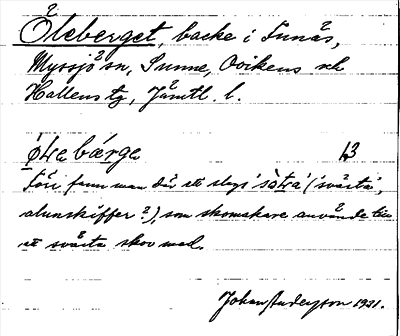 Öleberget, backe i Funäs,
Myssjö sn, Sunne, Ovikens och
Hallens tg, Jämtl. l.
bærga 13
Förr fann man där ett slags (svärta,
alunskiffer?), som skomakare använde till
att svärta skor med.
Johan Anderson 1931.